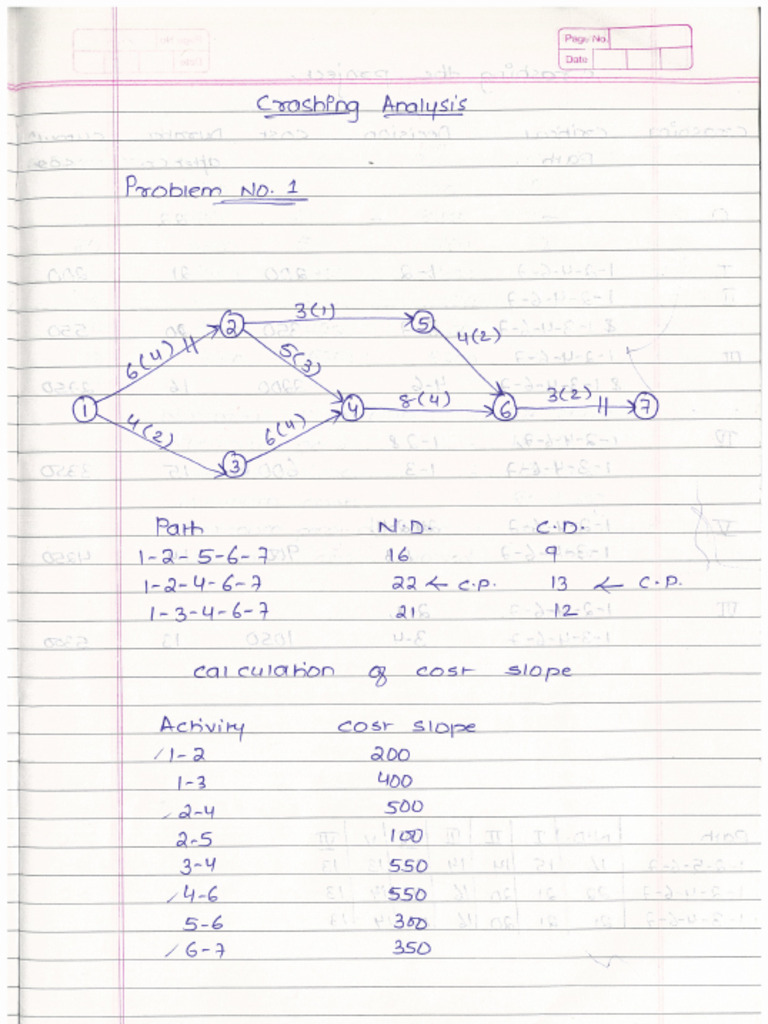 Page No.
Date
Crashing Analysis
Problem No. 1
3(1)
2
5
6(4)
5(3)
4(2)
1
4
8(4)
6
3(2)
7
4(2)
6(4)
3
Path N.D. C.D.
1-2-5-6-7 16 9
1-2-4-6-7 22 ← C.P. 13 ← C.P.
1-3-4-6-7 21 12
Calculation of cost slope
Activity cost slope
1-2 200
1-3 400
2-4 500
2-5 100
3-4 550
4-6 550
5-6 300
6-7 350